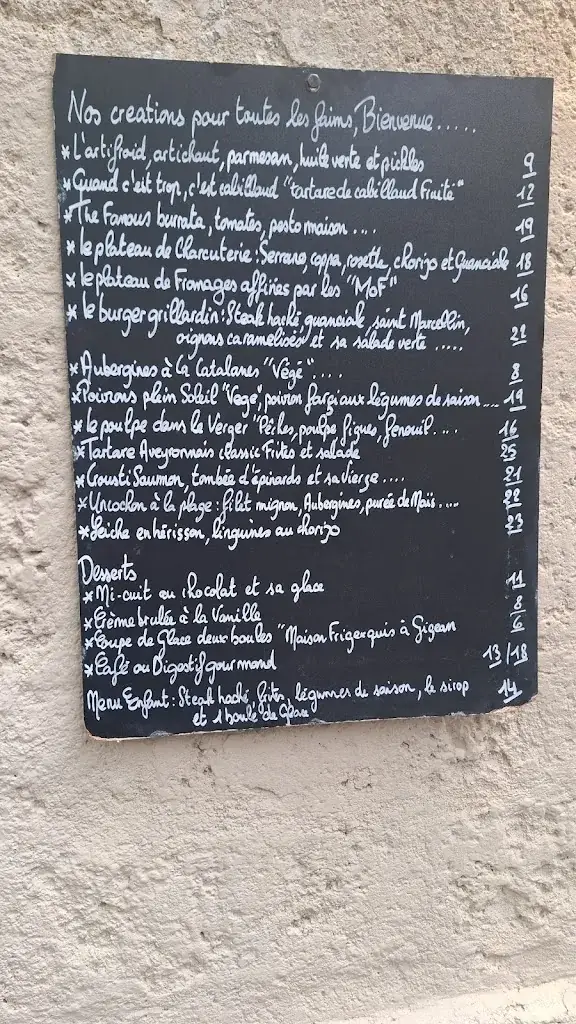 Nos creations pour toutes les faims, Bienvenue.....
* L'artifroid, artichaut, parmesan, huile verte et pickles 9
* Quand c'est trop, c'est cabillaud "tartare de cabillaud Fruité" 12
* The Famous burrata, tomates, pesto maison.... 19
* le plateau de Charcuterie : Serrano, coppa, rosette, chorizo et Guanciale 18
* le plateau de Fromages affinés par les "MOF" 16
* le burger grillardin : Steak haché guanciale, saint Marcellin,
oignons caramelisés et sa salade verte ..... 21
* Aubergines à la Catalanes "Végé".... 8
* Poivrons plein Soleil "Vegé", poivron farci aux légumes de saison.... 19
* le poulpe dans le Verger "Pêches, poulpe figues, fenouil.... 16
* Tartare Aveyronnais classic Frites et salade 25
* Crousti Saumon, tombée d'épinards et sa vierge.... 21
* Un cochon à la plage : filet mignon, Aubergines, purée de Maïs.... 22
* Seiche en hérisson, linguines au chorizo 23
Desserts
* Mi-cuit au chocolat et sa glace 11
* Crème brulée à la Vanille 8
* Coupe de Glace deux boules "Maison Frigerquis à Gigean 6
* Café ou Digestif gourmand 13/18
Menu Enfant : Steak haché frites, légumes de saison, le sirop 14
et 1 boule de Glace